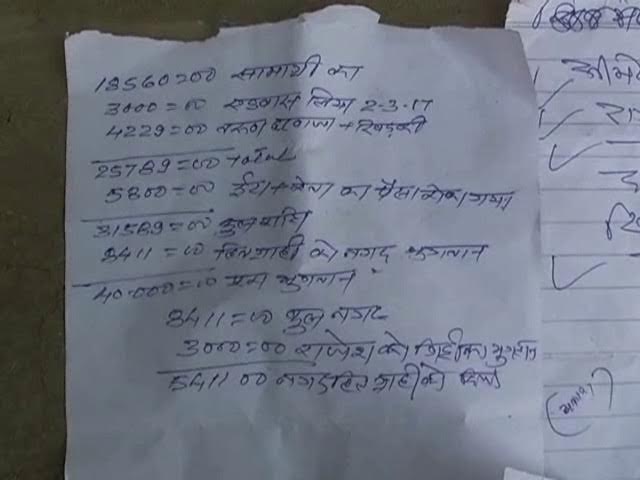 18560=00 सामाग्री का
3000=00 एडवांस लिया 2-3-17
4229=00 दरवाजा + खिड़की
25789=00 total
5800=00 ईटा + का पैसा रोका गया
31589=00 कुल राशि
8411=00 हितग्राही को नगद भुगतान
40.000=00 भुगतान
8411=00 कुल नगद
3000=00 राजेश को का भुगतान
5411 00 नगद हितग्राही को दिया